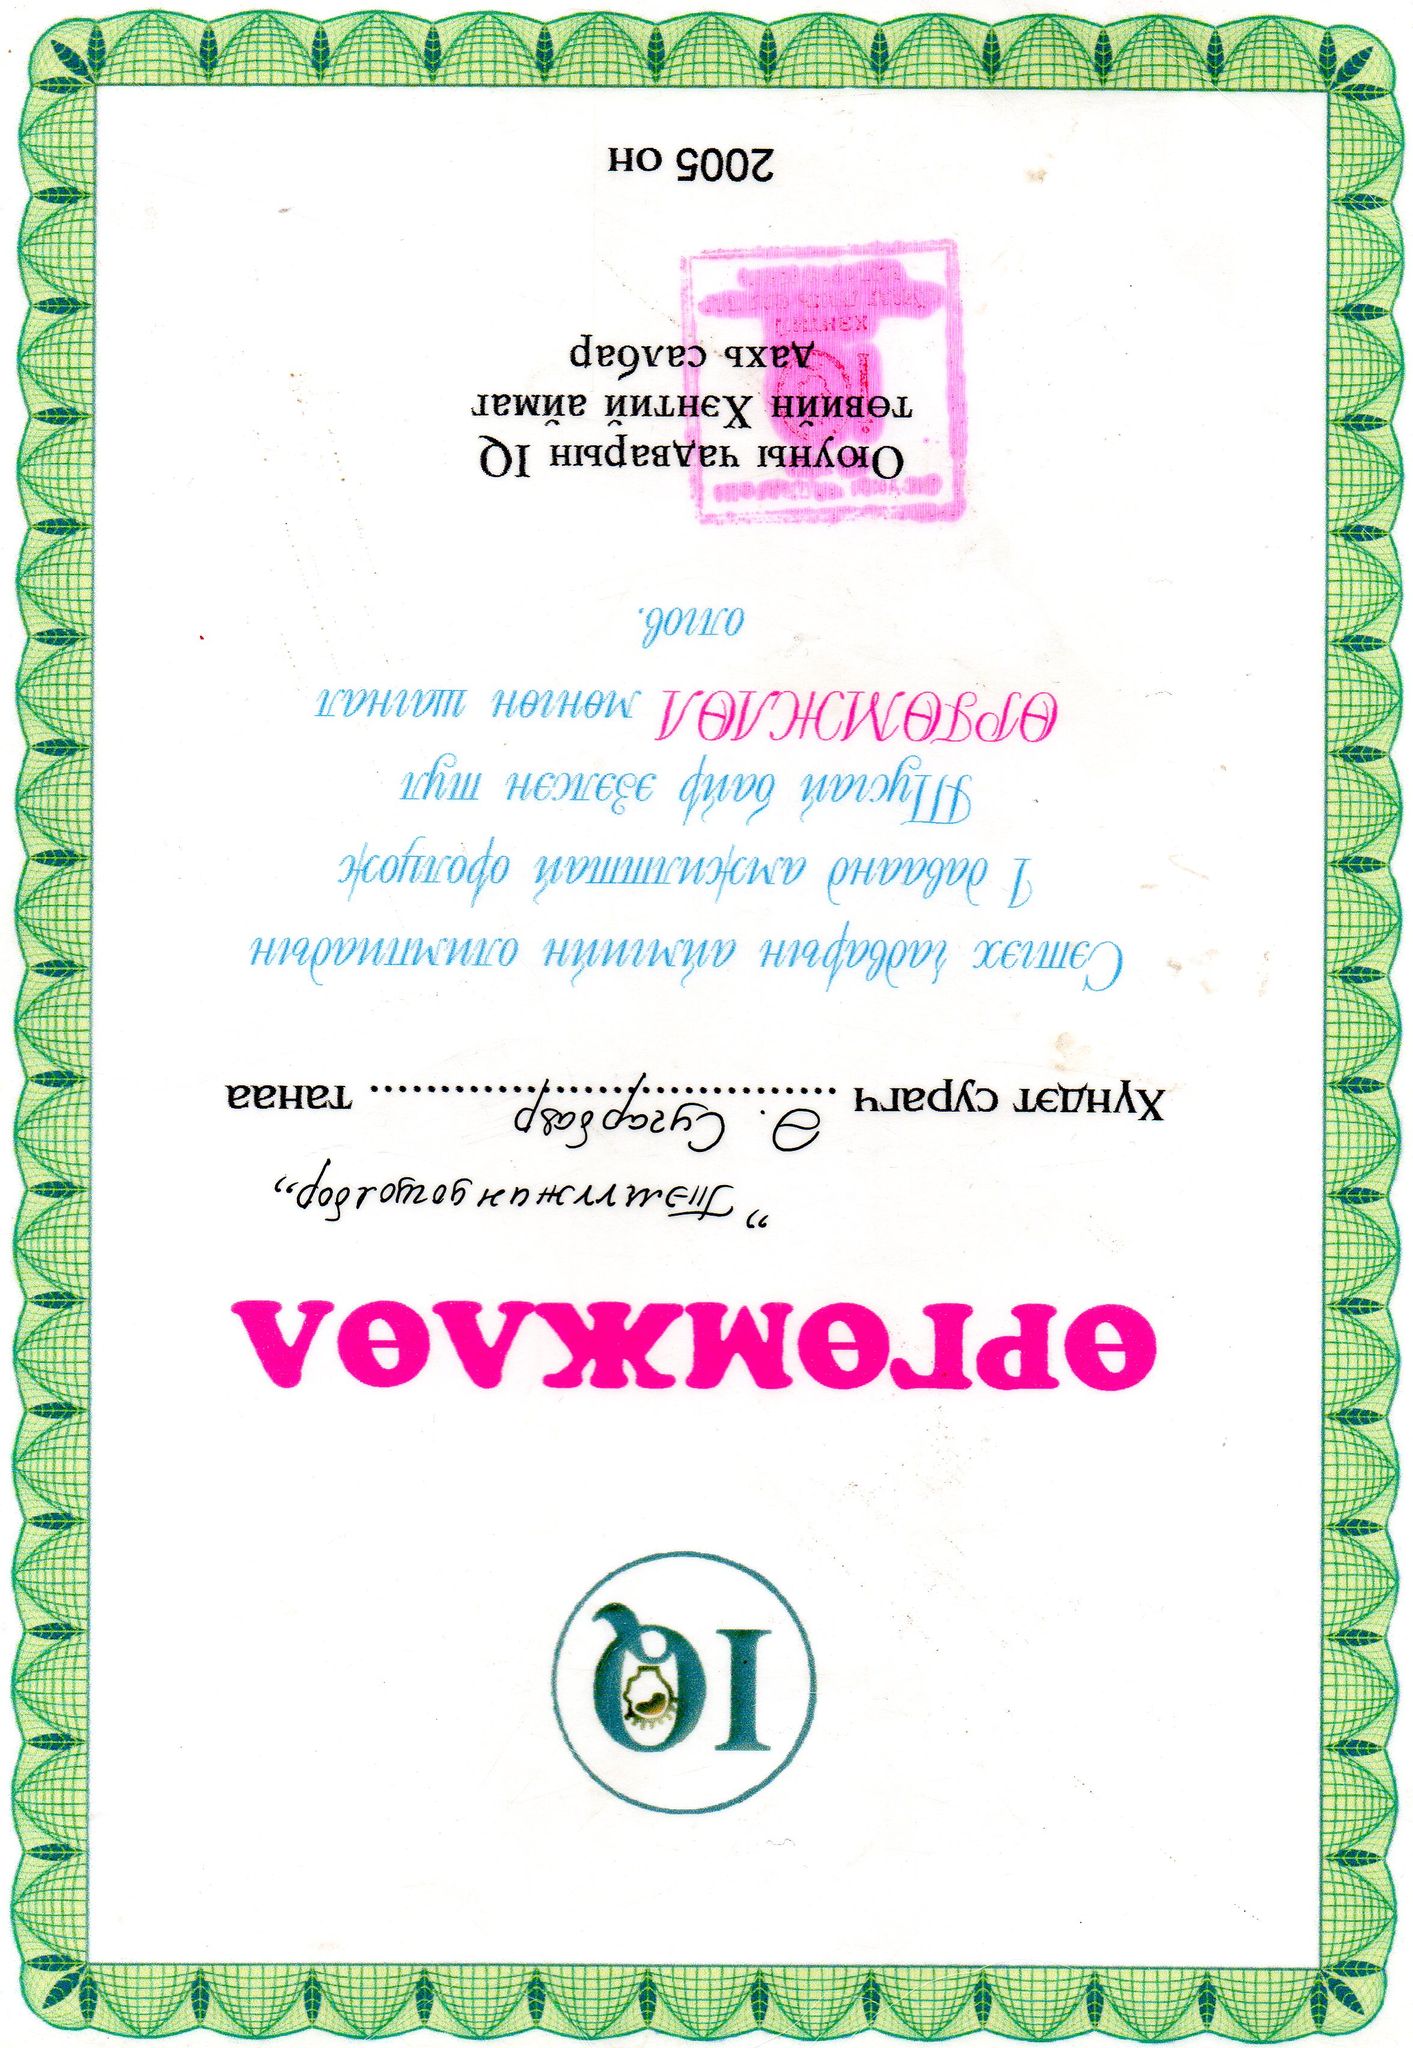 IQ
ӨРГӨМЖЛӨЛ
"Тэмүүжин цогцолбор"
Хүндэт сурагч Ә. Сугарбаяр танаа
Сэтгэх чадварын аймгийн олимпиадын
I даваанд амжилттай оролцож
Тусгай байр эзэлсэн тул
ӨРГӨМЖЛӨЛ мөнгөн шагнал
олгов.
Оюуны чадварын IQ
төвийн Хэнтий аймаг
дахь салбар
2005 он